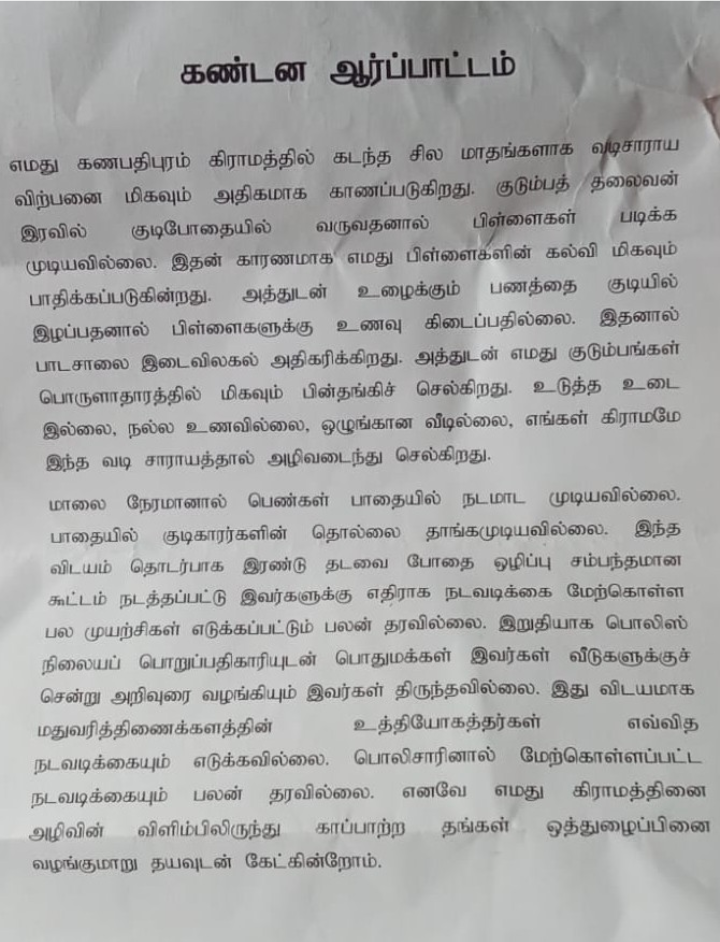 கண்டன ஆர்ப்பாட்டம்
எமது கணபதிபுரம் கிராமத்தில் கடந்த சில மாதங்களாக வடிசாராய
விற்பனை மிகவும் அதிகமாக காணப்படுகிறது. குடும்பத் தலைவன்
இரவில் குடிபோதையில் வருவதனால் பிள்ளைகள் படிக்க
முடியவில்லை. இதன் காரணமாக எமது பிள்ளைகளின் கல்வி மிகவும்
பாதிக்கப்படுகின்றது. அத்துடன் உழைக்கும் பணத்தை குடியில்
இழப்பதனால் பிள்ளைகளுக்கு உணவு கிடைப்பதில்லை. இதனால்
பாடசாலை இடைவிலகல் அதிகரிக்கிறது. அத்துடன் எமது குடும்பங்கள்
பொருளாதாரத்தில் மிகவும் பின்தங்கிச் செல்கிறது. உடுத்த உடை
இல்லை, நல்ல உணவில்லை, ஒழுங்கான வீடில்லை, எங்கள் கிராமமே
இந்த வடி சாராயத்தால் அழிவடைந்து செல்கிறது.
மாலை நேரமானால் பெண்கள் பாதையில் நடமாட முடியவில்லை.
பாதையில் குடிகாரர்களின் தொல்லை தாங்கமுடியவில்லை. இந்த
விடயம் தொடர்பாக இரண்டு தடவை போதை ஒழிப்பு சம்பந்தமான
கூட்டம் நடத்தப்பட்டு இவர்களுக்கு எதிராக நடவடிக்கை மேற்கொள்ள
பல முயற்சிகள் எடுக்கப்பட்டும் பலன் தரவில்லை. இறுதியாக பொலிஸ்
நிலையப் பொறுப்பதிகாரியுடன் பொதுமக்கள் இவர்கள் வீடுகளுக்குச்
சென்று அறிவுரை வழங்கியும் இவர்கள் திருந்தவில்லை. இது விடயமாக
மதுவரித்திணைக்களத்தின் உத்தியோகத்தர்கள் எவ்வித
நடவடிக்கையும் எடுக்கவில்லை. பொலிசாரினால் மேற்கொள்ளப்பட்ட
நடவடிக்கையும் பலன் தரவில்லை. எனவே எமது கிராமத்தினை
அழிவின் விளிம்பிலிருந்து காப்பாற்ற தங்கள் ஒத்துழைப்பினை
வழங்குமாறு தயவுடன் கேட்கின்றோம்.